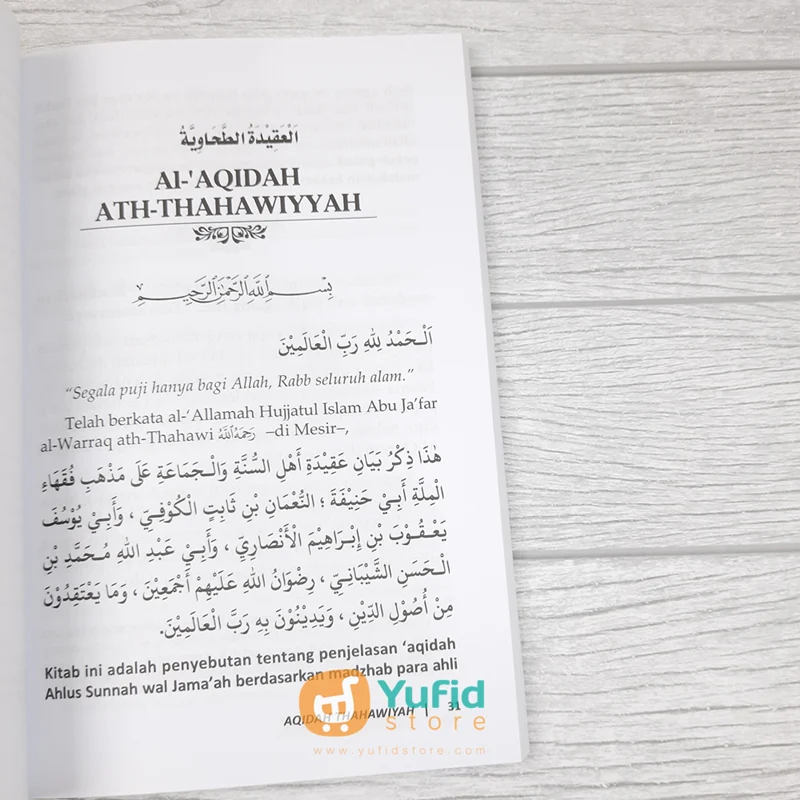 اَلْعَقِيْدَةُ الطَّحَاوِيَّةُ
Al-'AQIDAH
ATH-THAHAWIYYAH
بِسْمِ اللَّهِ الرَّحْمَٰنِ الرَّحِيمِ
اَلْحَمْدُ لِلهِ رَبِّ الْعَالَمِيْنَ
“Segala puji hanya bagi Allah, Rabb seluruh alam.”
Telah berkata al-‘Allamah Hujjatul Islam Abu Ja’far
al-Warraq ath-Thahawi رَحِمَهُ اللَّهُ –di Mesir–,
هٰذَا ذِكْرُ بَيَانِ عَقِيْدَةِ أَهْلِ السُّنَّةِ وَالْجَمَاعَةِ عَلَى مَذْهَبِ فُقَهَاءِ
الْمِلَّةِ أَبِيْ حَنِيْفَةَ ؛ النُّعْمَانِ بْنِ ثَابِتٍ الْكُوْفِيِّ ، وَأَبِيْ يُوْسُفَ
يَعْقُوْبَ بْنِ إِبْرَاهِيْمَ الْأَنْصَارِيِّ ، وَأَبِيْ عَبْدِ اللهِ مُحَمَّدِ بْنِ
الْحَسَنِ الشَّيْبَانِيِّ ، رِضْوَانُ اللهِ عَلَيْهِمْ أَجْمَعِيْنَ ، وَمَا يَعْتَقِدُوْنَ
مِنْ أُصُوْلِ الدِّيْنِ ، وَيَدِيْنُوْنَ بِهِ رَبَّ الْعَالَمِيْنَ.
Kitab ini adalah penyebutan tentang penjelasan ‘aqidah
Ahlus Sunnah wal Jama’ah berdasarkan madzhab para ahli
AQIDAH THAHAWIYAH | 31
Yufid
store
www.yufidstore.com